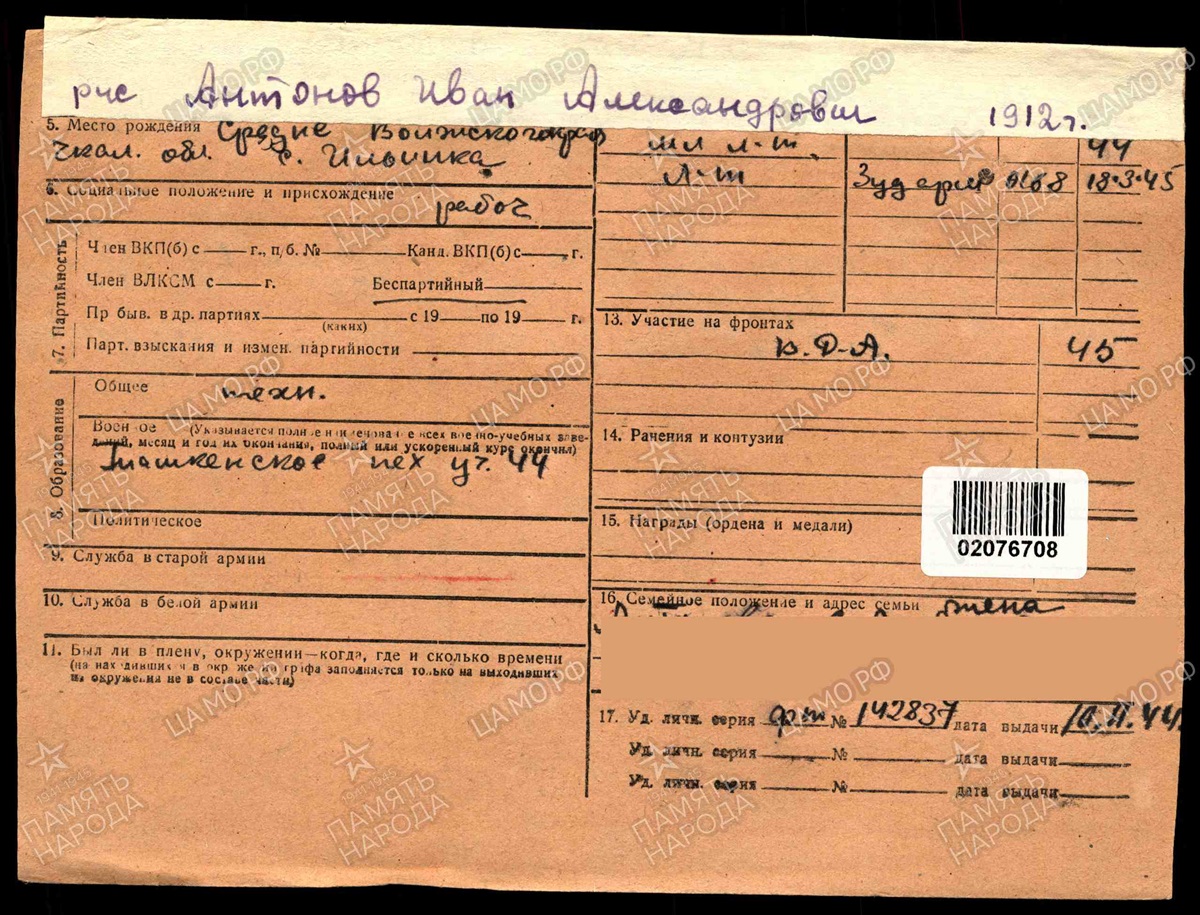 рус Антонов Иван Александрович 1912 г.
5. Место рождения Средне Волжского края
Чкал. обл. с. Ильинка
6. Социальное положение и присхождение
рабоч
7. Партийность
Член ВКП(б) с г., п, б. № Канд. ВКП(б) с г.
Член ВЛКСМ с г. Беспартийный
Пр быв. в др. партиях с 19 по 19 г.
(каких)
Парт. взыскания и измен. партийности
8. Образование
Общее техн.
Военное (Указывается полное наименование всех военно-учебных заве-
дений, месяц и год их окончания, полный или ускоренный курс окончил)
Ташкенское пех уч. 44
Политическое
9. Служба в старой армии
10. Служба в белой армии
11. Был ли в плену, окружении—когда, где и сколько времени
(на находившихся в окружении графа заполняется только на выходивших
из окружения не в составе части)
мл л-т. 44
л-т 0168 18.3.45
13. Участие на фронтах
В.Д-А. 45
14. Ранения и контузии
15. Награды (ордена и медали)
02076708
16. Семейное положение и адрес семьи жена
17. Уд. личн. серия № 142837 дата выдачи 10.11.44
Уд. личн. серия № дата выдачи
Уд. личн. серия № дата выдачи
ЦАМО.РФ
1941-1945
ПАМЯТЬ
НАРОДА